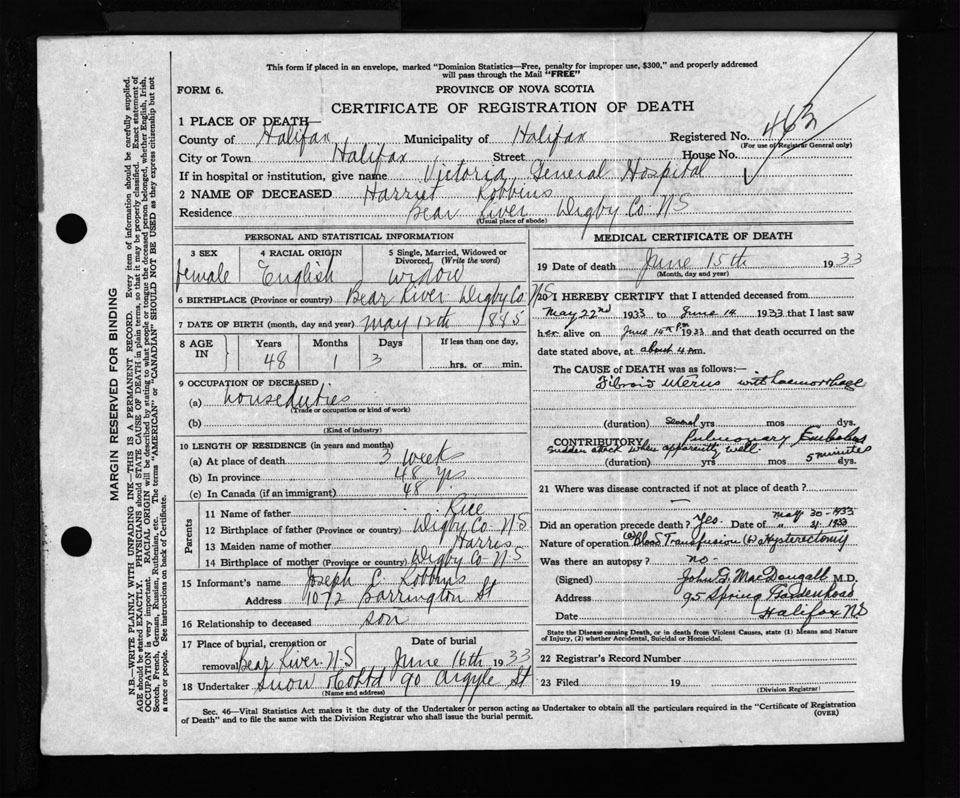 This form if placed in an envelope, marked "Dominion Statistics—Free, penalty for improper use, $300," and properly addressed
will pass through the Mail "FREE"
FORM 6.
PROVINCE OF NOVA SCOTIA
CERTIFICATE OF REGISTRATION OF DEATH
1 PLACE OF DEATH—
County of Halifax Municipality of Halifax Registered No. 463
(For use of Registrar General only)
City or Town Halifax Street House No.
If in hospital or institution, give name Victoria General Hospital
2 NAME OF DECEASED Harriet Robbins
Residence Bear River Digby Co. N S
(Usual place of abode)
PERSONAL AND STATISTICAL INFORMATION
3 SEX 4 RACIAL ORIGIN 5 Single, Married, Widowed or
Divorced. (Write the word)
female English widow
6 BIRTHPLACE (Province or country) Bear River Digby Co. N S
7 DATE OF BIRTH (month, day and year) May 12th 1885
8 AGE IN Years Months Days If less than one day,
48 1 3 hrs. or min.
9 OCCUPATION OF DECEASED
(a) house duties
(Trade or occupation or kind of work)
(b)
(Kind of industry)
10 LENGTH OF RESIDENCE (in years and months)
(a) At place of death 3 week
(b) In province 48 yrs
(c) In Canada (if an immigrant) 48 "
Parents
11 Name of father Rice
12 Birthplace of father (Province or country) Digby Co. N S
13 Maiden name of mother Harris
14 Birthplace of mother (Province or country) Digby Co N S
15 Informant's name Joseph C. Robbins
Address 1072 Barrington St
16 Relationship to deceased son
17 Place of burial, cremation or Date of burial
removal Bear River N.S June 16th 1933
18 Undertaker Snow & Co Ltd 90 Argyle St
(Name and address)
MEDICAL CERTIFICATE OF DEATH
19 Date of death June 15th 1933
(Month, day and year)
20 I HEREBY CERTIFY that I attended deceased from
May 22nd 1933 to June 14 1933 that I last saw
her alive on June 14th pm 1933 and that death occurred on the
date stated above, at about 4 am.
The CAUSE of DEATH was as follows:—
Fibroid Uterus with haemorrhage
(duration) Several yrs mos dys.
CONTRIBUTORY Pulmonary Embolus
sudden attack when apparently well. 5 minutes
(duration) yrs mos dys.
21 Where was disease contracted if not at place of death?
Did an operation precede death? Yes. Date of May 30-1933
" 31 1933
Nature of operation (a) Blood Transfusion (b) Hysterectomy
Was there an autopsy? no
(Signed) John G. MacDougall M.D.
Address 95 Spring Garden Road
Date Halifax N S
State the Disease causing Death, or in death from Violent Causes, state (1) Means and Nature
of Injury, (2) whether Accidental, Suicidal or Homicidal.
22 Registrar's Record Number
23 Filed 19
(Division Registrar)
Sec. 46—Vital Statistics Act makes it the duty of the Undertaker or person acting as Undertaker to obtain all the particulars required in the "Certificate of Registration
of Death" and to file the same with the Division Registrar who shall issue the burial permit.
(OVER)
MARGIN RESERVED FOR BINDING
N.B.—WRITE PLAINLY WITH UNFADING INK—THIS IS A PERMANENT RECORD. Every item of information should be carefully supplied.
AGE should be stated EXACTLY. PHYSICIANS should STATE CAUSE OF DEATH in plain terms, so that it may be properly classified. Exact statement of
OCCUPATION is very important. RACIAL ORIGIN will be described by stating to what people or tongue the deceased person belonged, whether English, Irish,
Scotch, French, German, Russian, Ruthenian, etc. The terms "AMERICAN" or "CANADIAN" SHOULD NOT BE USED as they express citizenship but not
a race or people. See instructions on back of Certificate.